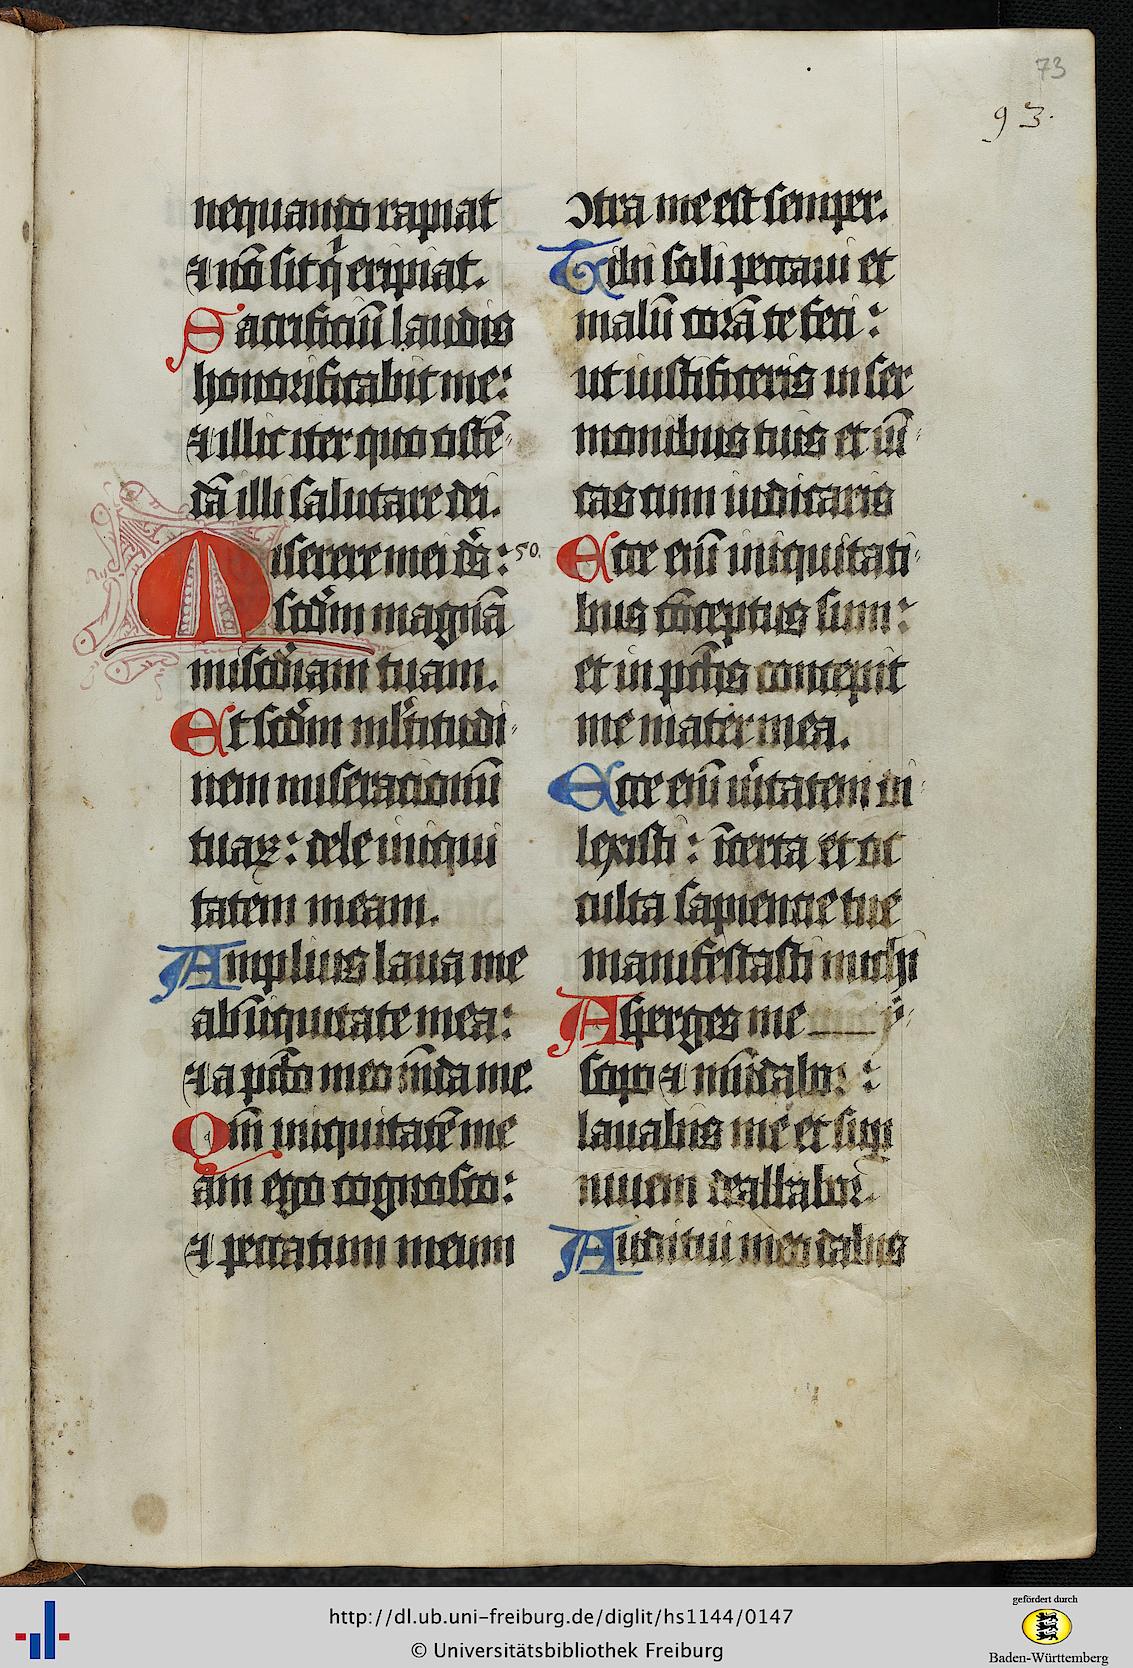 73
93.
nequando rapiat
⁊ nō sit q̇ eripiat.
Sacrificiū laudis
honorificabit me:
⁊ illic iter quo ostē-
dā illi salutare dei.
Miserere mei ds̄: 50.
scd̄m magnā
misc̄diam tuam.
Et scd̄m ml̄titudi-
nem miseracionū
tuaꝝ: dele iniqui
tatem meam.
Amplius laua me
ab īiquitate mea:
⁊ a pctō meo mūda me
Qm̄ iniquitatē me
am ego cognosco:
⁊ peccatum meum
ↄtra me est semper.
Tibi soli peccaui et
malū corā te feci:
ut iustificeris in ser
monibus tuis et uī-
cas cum iudicaris
Ecce eni̅ iniquitati-
bus cōceptus sum:
et in pctīs concepit
me mater mea.
Ecce eni̅ ūitatem di-
lexisti: īcerta et oc
culta sapiencie tue
manifestasti michi
Asperges me y-
sopo ⁊ mūdabor:
lauabis me et sup
niuem dealbabor.
Auditui meo dabis
http://dl.ub.uni-freiburg.de/diglit/hs1144/0147
© Universitätsbibliothek Freiburg
gefördert durch
Baden-Württemberg